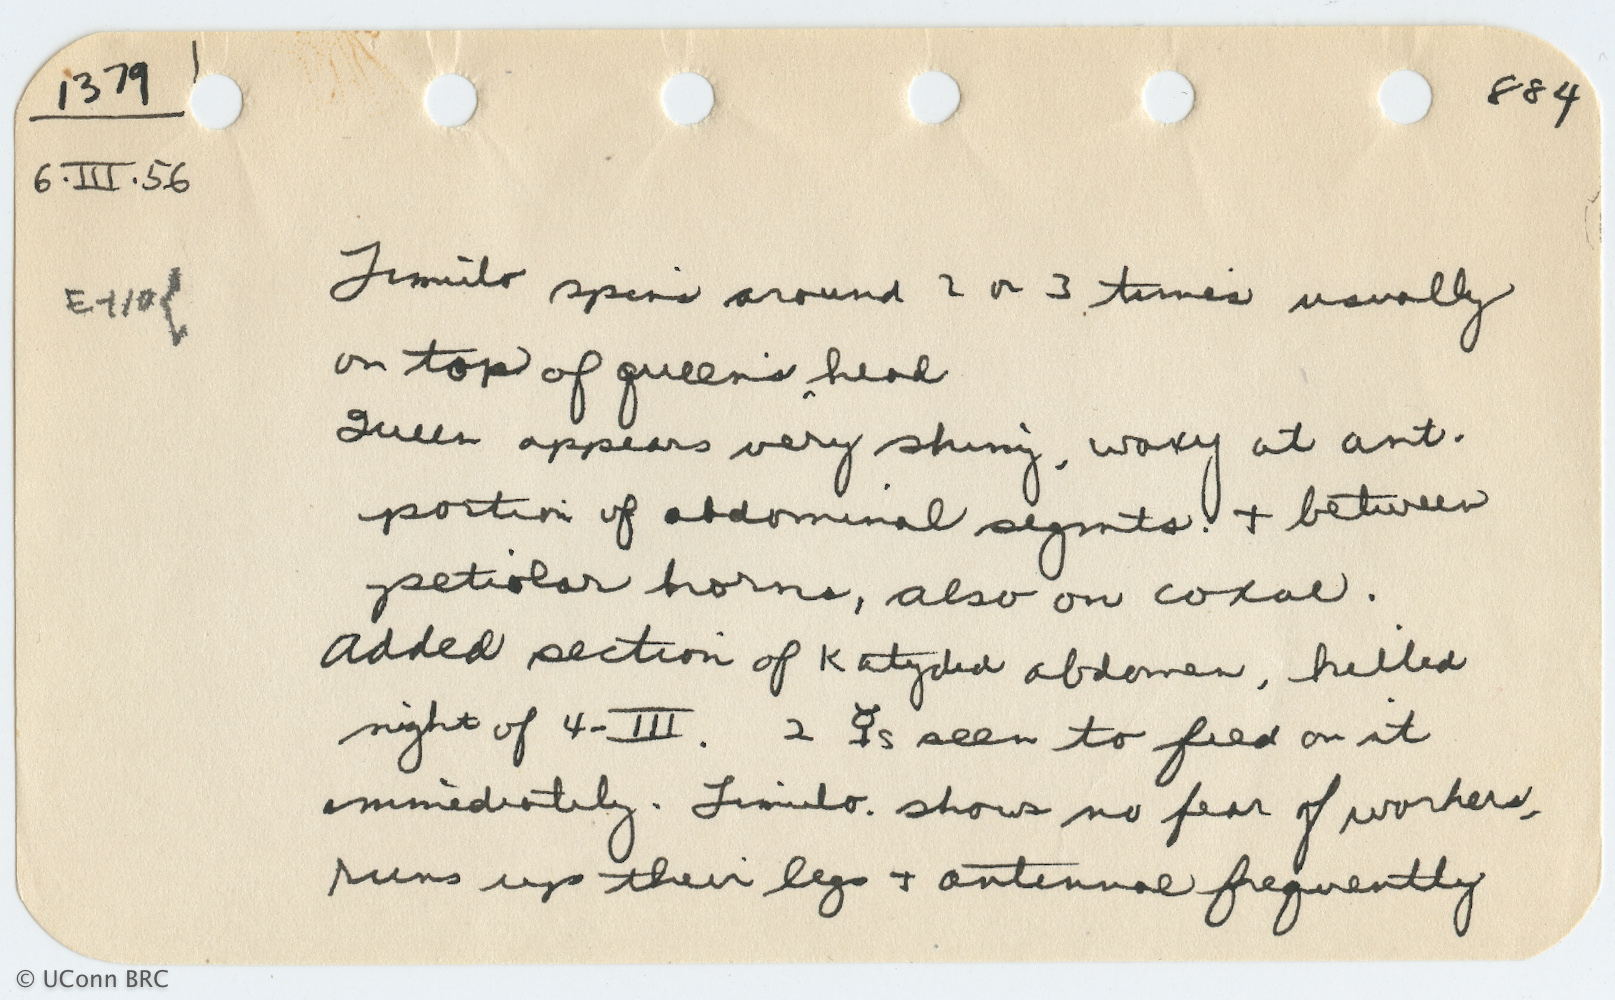 1379
884
6·III·56
Limulo spins around 2 or 3 times usually
on top of queen's head
Queen appears very shiny, waxy at ant.
portion of abdominal segmts. + between
petiolar horns, also on coxae.
Added section of Katydid abdomen, killed
night of 4-III. 2 ☿s seen to feed on it
immediately. Limulo. shows no fear of workers,
runs up their legs + antennae frequently
© UConn BRC